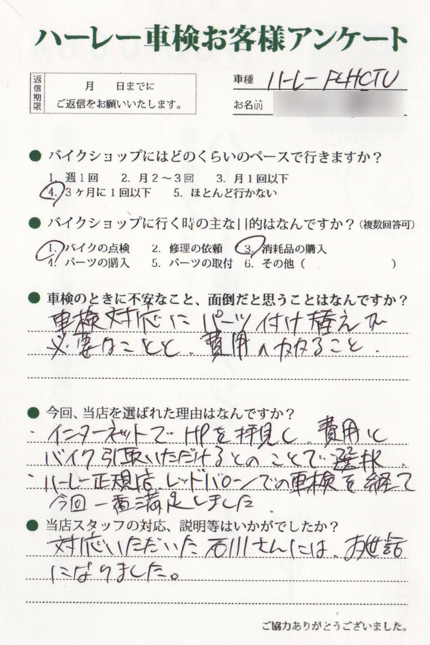 ハーレー車検お客様アンケート
返信期限
月　日までに
ご返信をお願いいたします。
車種 ハーレー FLHCTU
お名前
● バイクショップにはどのくらいのペースで行きますか？
1. 週1回　2. 月2～3回　3. 月1回以下
4. 3ヶ月に1回以下　5. ほとんど行かない
● バイクショップに行く時の主な目的はなんですか？（複数回答可）
1. バイクの点検　2. 修理の依頼　3. 消耗品の購入
4. パーツの購入　5. パーツの取付　6. その他（　　　）
● 車検のときに不安なこと、面倒だと思うことはなんですか？
車検対応にパーツ付け替えが
必要なことと、費用がかかること.
● 今回、当店を選ばれた理由はなんですか？
・インターネットでHPを拝見し、費用と
バイク引取いただけるとのことで選択.
・ハーレー正規店、レッドバロンでの車検を経て
今回一番満足しました
● 当店スタッフの対応、説明等はいかがでしたか？
対応いただいた石川さんには、お世話
になりました。
ご協力ありがとうございました。